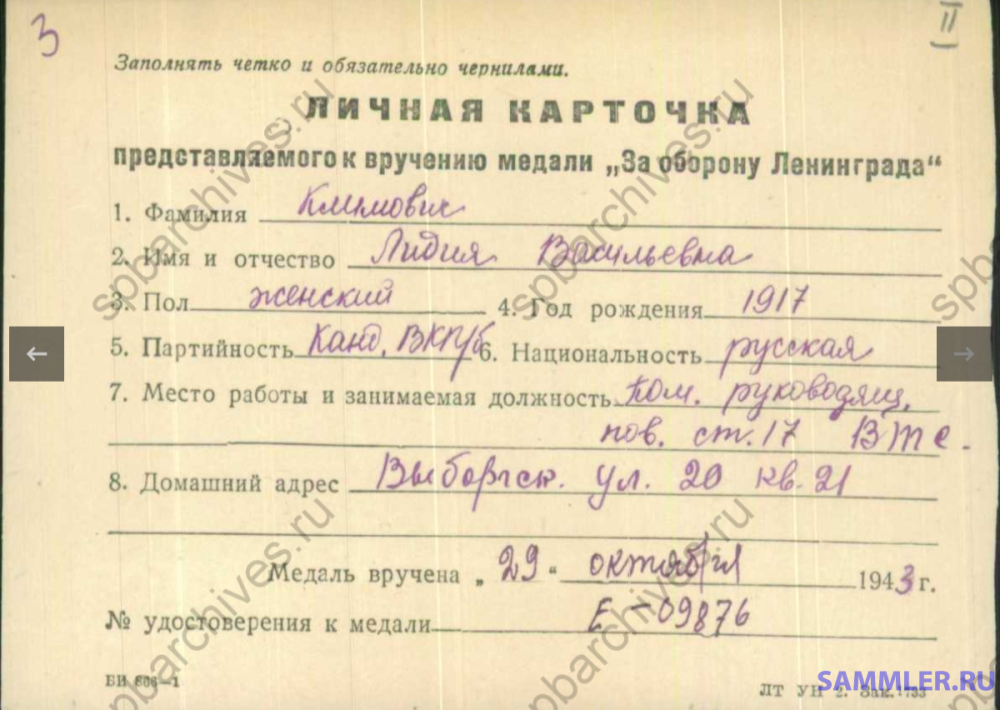 3
II
Заполнять четко и обязательно чернилами.
ЛИЧНАЯ КАРТОЧКА
представляемого к вручению медали „За оборону Ленинграда“
1. Фамилия Климович
2. Имя и отчество Лидия Васильевна
3. Пол женский 4. Год рождения 1917
5. Партийность Канд. ВКП/б 6. Национальность русская
7. Место работы и занимаемая должность Ком. руководящ.
пов. ст. 17 ВТС.
8. Домашний адрес Выборгск. ул. 20 кв. 21
Медаль вручена „29“ октября 1943 г.
№ удостоверения к медали Е-09876
БИ 866—1
ЛТ УН 2. Зак. 1733
SAMMLER.RU
spbarchives.ru
spbarchives.ru
spbarchives.ru
spbarchives.ru